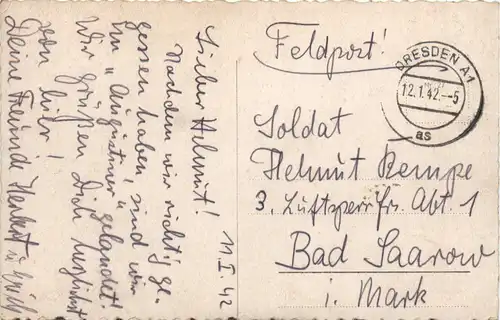 11.I.42
Lieber Helmut!
Nachdem wir richtig ge-
gessen haben, sind wir
im "Augustiner" gelandet!
Wir grüßen Dich herzlichst
von hier!
Deine Freunde Herbert u. Erich
Feldpost!
DRESDEN A1
12.1.42.--5
as
Soldat
Helmut Rempe
3. Luftsperr Abt. 1
Bad Saarow
i. Mark